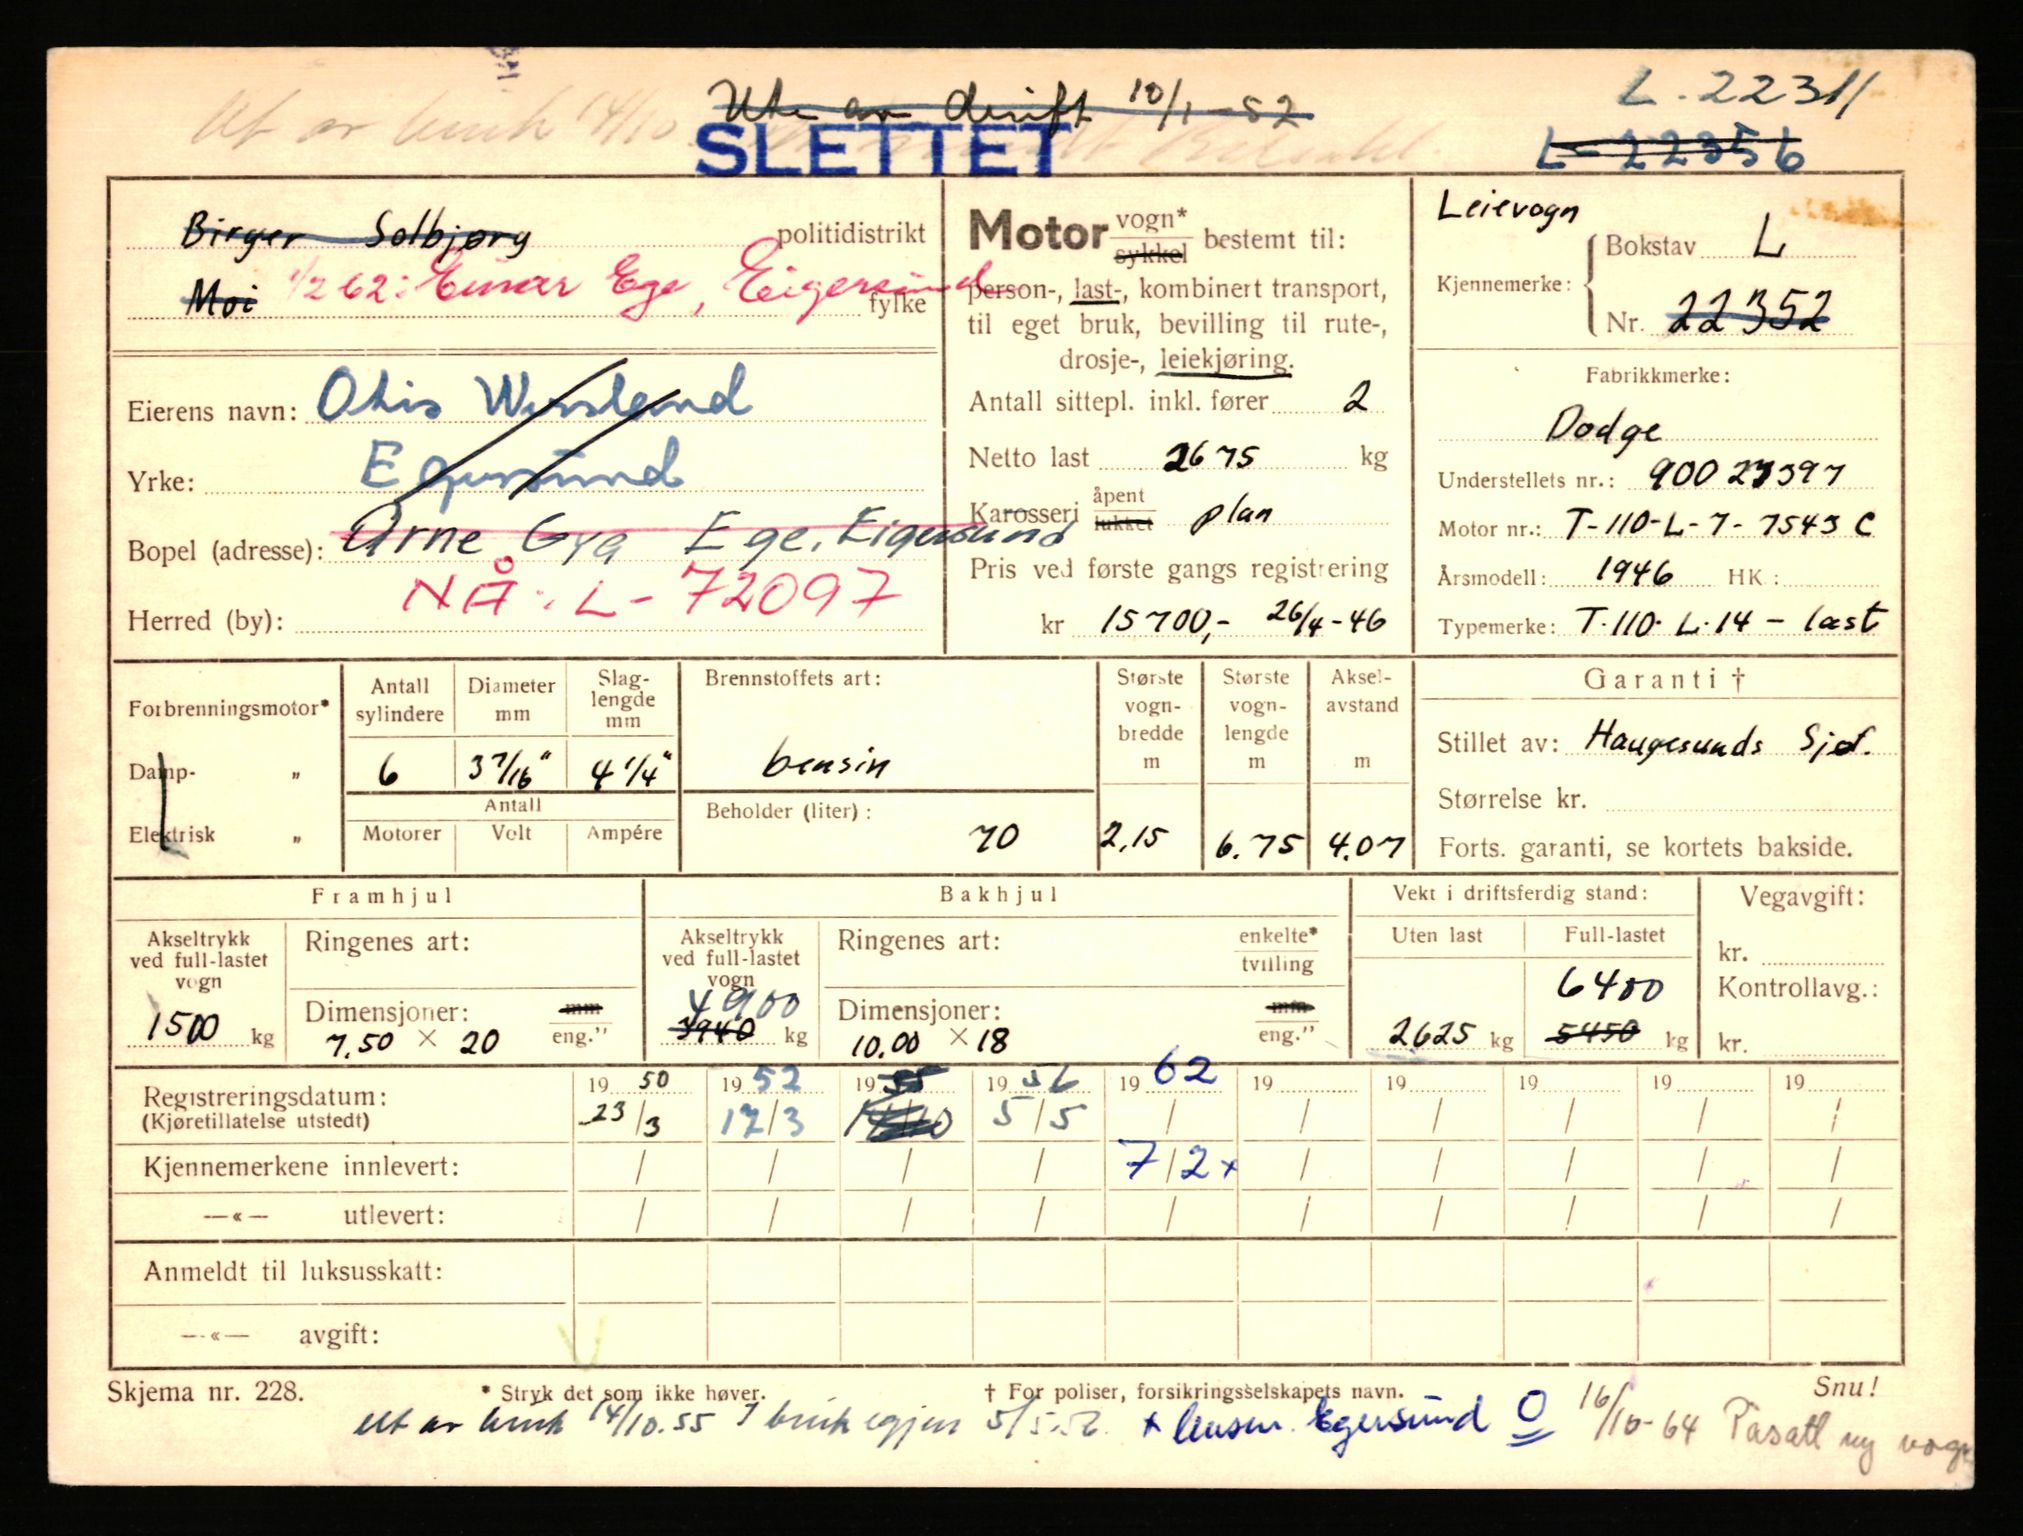 Ute av drift 10/1-52
L-22311
Ut av bruk 14/10
SLETTET
L-22356
Birger Solbjørg politidistrikt
Moi 1/2 62: Einar Ege, Eigersund fylke
Eierens navn: Otis Wersland
Yrke: Egersund
Bopel (adresse): Arne Gya Ege, Eigersund
NÅ: L-72097
Herred (by):
Motor vogn* sykkel bestemt til:
person-, last-, kombinert transport,
til eget bruk, bevilling til rute-,
drosje-, leiekjøring.
Antall sittepl. inkl. fører 2
Netto last 2675 kg
Karosseri åpent lukket plan
Pris ved første gangs registrering
kr 15700,- 26/4-46
Leievogn
Kjennemerke: Bokstav L
Nr. 22352
Fabrikkmerke:
Dodge
Understellets nr.: 90027397
Motor nr.: T-110-L-7-7543 C
Årsmodell: 1946 HK.:
Typemerke: T.110. L.14 - last
Forbrenningsmotor*
Damp- "
Elektrisk "
Antall sylindere 6
Diameter mm 3 7/16"
Slag-lengde mm 4 1/4"
Antall
Motorer Volt Ampére
Brennstoffets art:
bensin
Beholder (liter):
70
Største vogn-bredde m 2,15
Største vogn-lengde m 6.75
Aksel-avstand m 4.07
Garanti †
Stillet av: Haugesunds Sjøf.
Størrelse kr.
Forts. garanti, se kortets bakside.
Framhjul
Akseltrykk ved full-lastet vogn
1500 kg
Ringenes art:
Dimensjoner: mm eng."
7.50 × 20
Bakhjul
Akseltrykk ved full-lastet vogn
4900
3940 kg
Ringenes art: enkelte* tvilling
Dimensjoner: mm eng."
10.00 × 18
Vekt i driftsferdig stand:
Uten last Full-lastet
6400
2625 kg 5450 kg
Vegavgift:
kr.
Kontrollavg.:
kr.
Registreringsdatum: 19 50 19 52 19 55 19 56 19 62 19 19 19 19 19
(Kjøretillatelse utstedt) 23/3 12/3 14/10 5/5 / / / / / /
Kjennemerkene innlevert: / / / / 7/2 x / / / / /
—«— utlevert: / / / / / / / / / /
Anmeldt til luksusskatt:
—«— avgift:
Skjema nr. 228. * Stryk det som ikke høver. † For poliser, forsikringsselskapets navn. Snu!
Ut av bruk 14/10.55 I bruk igjen 5/5.56. x lensm. Egersund O 16/10-64 Påsatt ny vogn